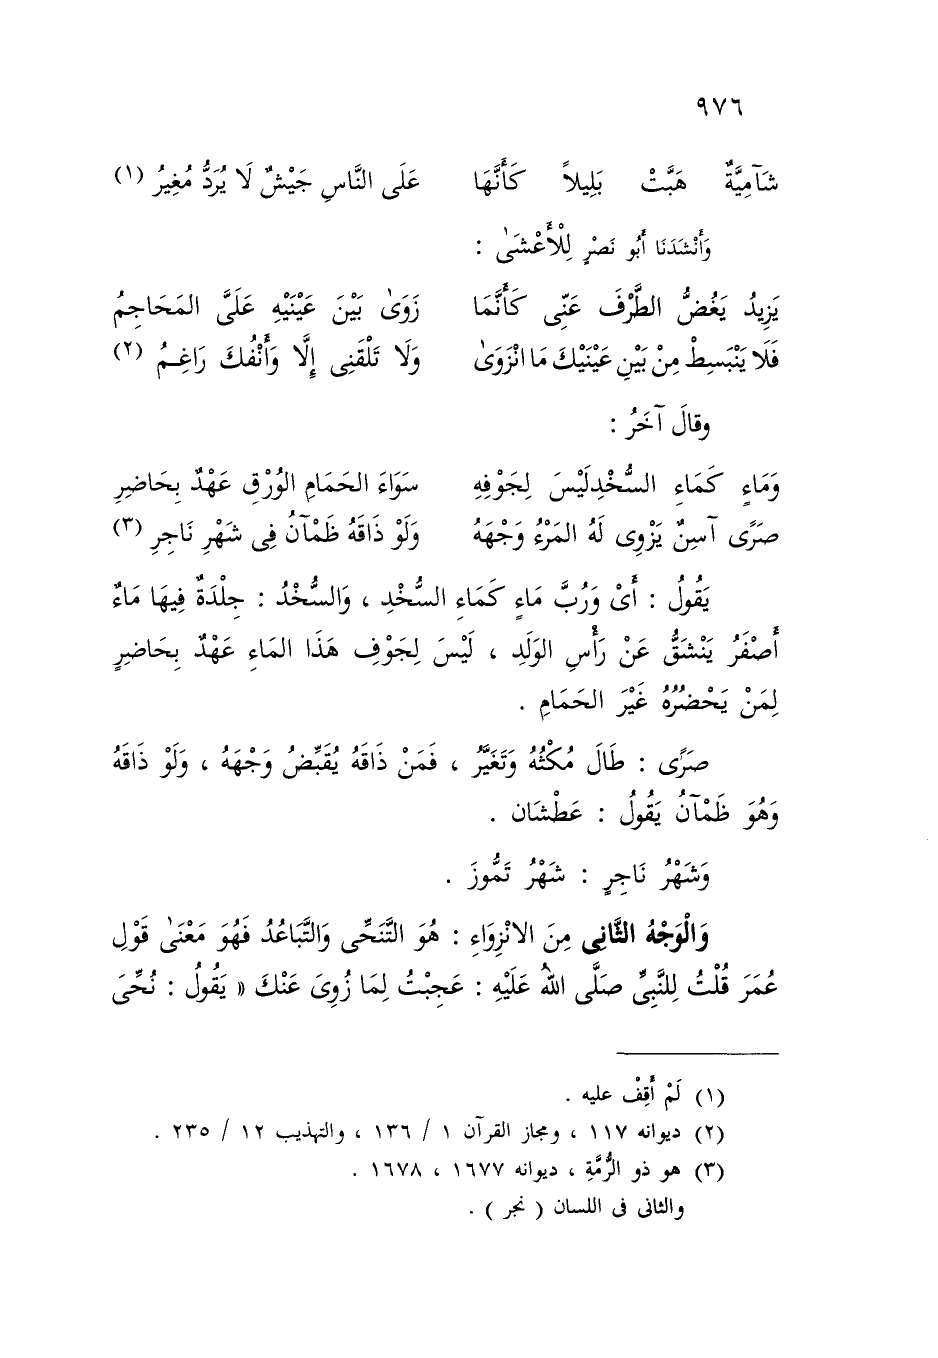 ٩٧٦
شَآمِيَّةٌ هَبَّتْ بَلِيلاً كَأَنَّهَا عَلَى النَّاسِ جَيْشٌ لَا يُرَدُّ مُغِيرُ (١)
وَأَنْشَدَنَا أَبُو نَصْرٍ لِلْأَعْشَىٰ :
يَزِيدُ يَغُضُّ الطَّرْفَ عَنِّى كَأَنَّمَا زَوَىٰ بَيْنَ عَيْنَيْهِ عَلَىَّ المَحَاجِمُ
فَلَا يَنْبَسِطْ مِنْ بَيْنِ عَيْنَيْكَ مَا انْزَوَىٰ وَلَا تَلْقَنِى إِلَّا وَأَنْفُكَ رَاغِمُ (٢)
وقالَ آخَرُ :
وَمَاءٍ كَمَاءِ السُّخْدِلَيْسَ لِجَوْفِهِ سَوَاءَ الحَمَامِ الوُرْقِ عَهْدٌ بِحَاضِرِ
صَرًى آسِنٌ يَزْوِى لَهُ المَرْءُ وَجْهَهُ وَلَوْ ذَاقَهُ ظَمْآنُ فِى شَهْرِ نَاجِرِ (٣)
يَقُولُ : أَىْ وَرُبَّ مَاءٍ كَمَاءِ السُّخْدِ ، وَالسُّخْدُ : جِلْدَةٌ فِيهَا مَاءٌ
أَصْفَرُ يَنْشَقُّ عَنْ رَأْسِ الوَلَدِ ، لَيْسَ لِجَوْفِ هَذَا المَاءِ عَهْدٌ بِحَاضِرٍ
لِمَنْ يَحْضُرُهُ غَيْرَ الحَمَامِ .
صَرًى : طَالَ مُكْثُهُ وَتَغَيَّرُ ، فَمَنْ ذَاقَهُ يُقَبِّضُ وَجْهَهُ ، وَلَوْ ذَاقَهُ
وَهُوَ ظَمْآنُ يَقُولُ : عَطْشَان .
وَشَهْرُ نَاجِرٍ : شَهْرُ تَمُّوزَ .
وَالْوَجْهُ الثَّانِى مِنَ الانْزِوَاءِ : هُوَ التَّنَحِّى وَالتَّبَاعُدُ فَهُوَ مَعْنَىٰ قَوْلِ
عُمَرَ قُلْتُ لِلنَّبِىِّ صَلَّى اللهُ عَلَيْهِ : عَجِبْتُ لِمَا زُوِىَ عَنْكَ « يَقُولُ : نُحِّىَ
(١) لَمْ أَقِفْ عليه .
(٢) ديوانه ١١٧ ، ومجاز القرآن ١ / ١٣٦ ، والتهذيب ١٢ / ٢٣٥ .
(٣) هو ذو الرُّمَّةِ ، ديوانه ١٦٧٧ ، ١٦٧٨ .
والثانى فى اللسان ( نجر ) .